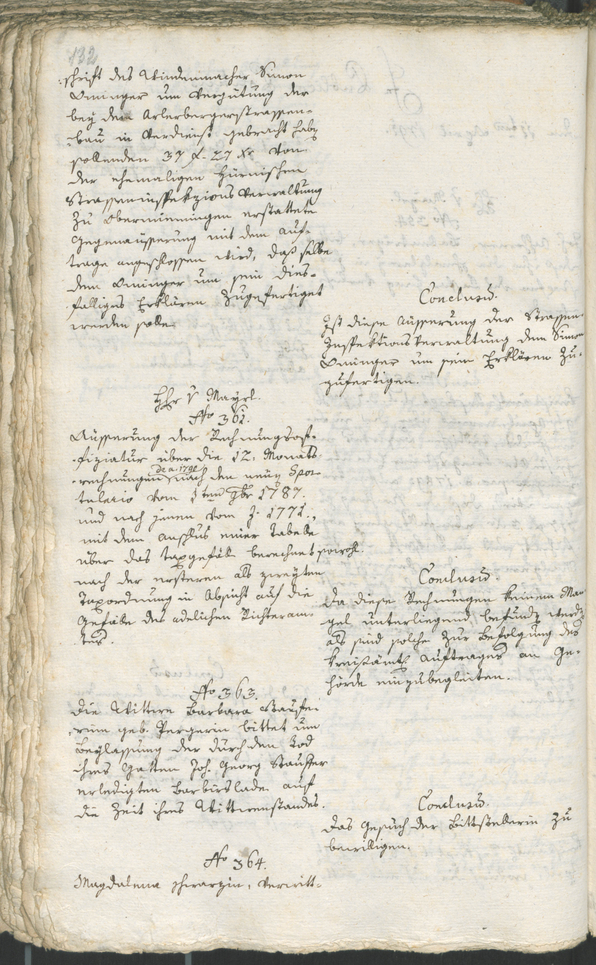 132
schrift des Windenmacher Simon
Oeninger um Vergütung der
bey dem Arlerbergerstrassen-
bau in Verdienst gebracht haben
sollenden 37 f. 27 Xr. von
der ehemaligen
Strasseninspekzions Verwaltung
zu Obermiemingen erstattete
Gegenäusserung mit dem auf-
trage angeschlossen wird, daß selbe
dem Oeninger um sein dies-
fälliges Erklären zugefertiget
werden solle.
Conclusum.
Ist diese Äusserung der Strassen-
Inspektions Verwaltung dem Simon
Oeninger um sein Erklären zu-
zufertigen.
Hr v Mayrl.
No 362.
Äusserung der Rechnungsoff-
fiziatur über die 12. Monats-
rechnungen de a. 1792 nach den neuen Spor-
tulario vom 1ten 9br 1787.
und nach jenem vom J. 1771.,
mit dem Anschlus einer Tabelle
über das Taxgefäll berechnet sowohl
nach der ersteren als zweyten
Taxordnung in Absicht auf die
Gefälle des adelichen Richteram-
tes.
Conclusum.
Da diese Rechnungen keinem Man-
gel unterliegend befunden werden
als sind solche zur Befolgung des
kreisämtl. Auftrages an Ge-
hörde einzubegleiten.
No 363.
Die Wittwe Barbara Stauffe-
rinn geb. Pergerin bittet um
Beylassung der durch den Tod
ihres Gatten Joh. Georg Stauffer
erledigten Barbierslade auf
die Zeit ihres Wittwenstandes.
Conclusum.
Das Gesuch der Bittstellerin zu
bewilligen.
No 364.
Magdalena Schwarzin, verwitt-